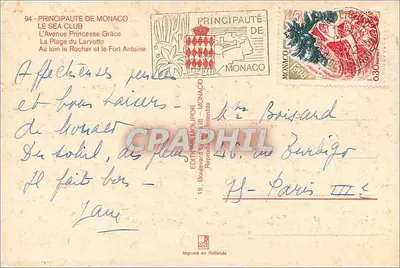 94 - PRINCIPAUTE DE MONACO
LE SEA CLUB
L'Avenue Princesse Grâce
La Plage du Larvotto
Au loin le Rocher et le Fort Antoine
PRINCIPAUTÉ
DE
MONACO
MONACO
0,30
Affectueuses pensées
et bons baisers
de Monaco
Du soleil, des fleurs
Il fait bon -
Jane
Mme Boisard
48, rue Turbigo
75 - Paris IIIe
EDITIONS MOLIPOR
19, Boulevard III - MONACO
Reproduction interdite
CPAPHIL
Imprimé en Hollande